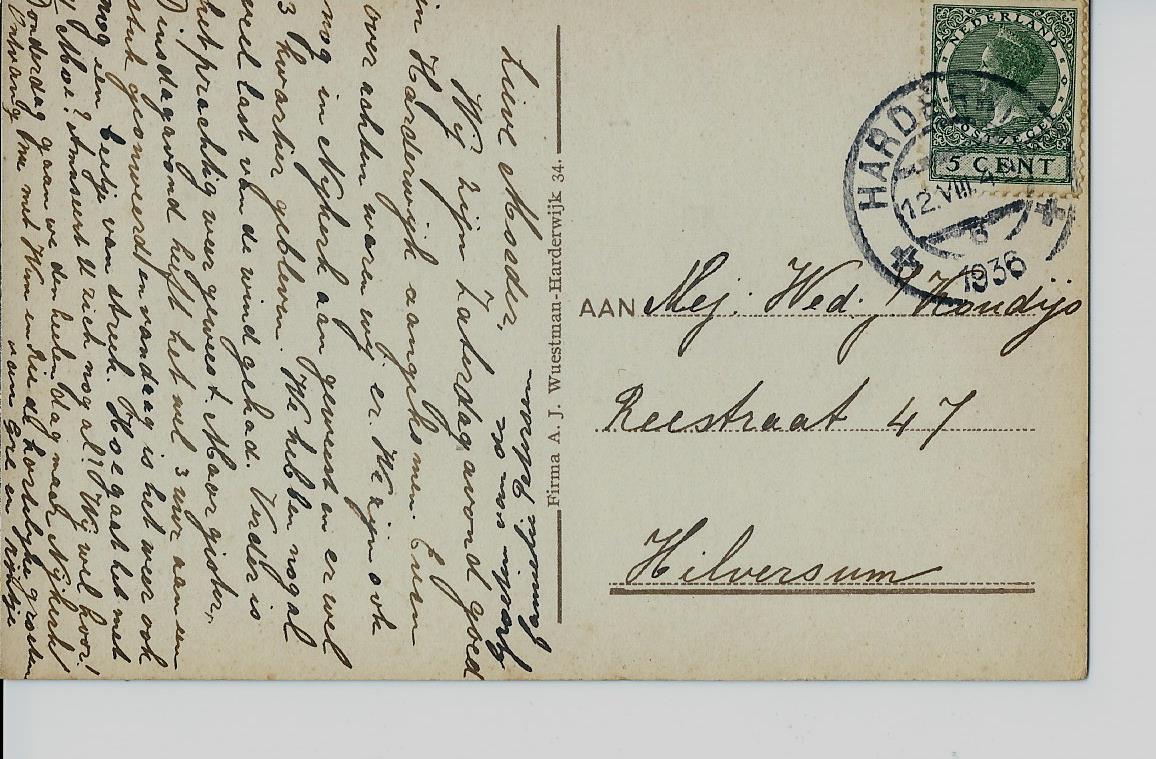 Lieve Moeder,
Wij zijn Zaterdagavond goed
in Harderwijk aangekomen. Even
over achten waren wij er. We zijn ook
nog in Nijkerk aan geweest en er wel
3 kwartier gebleven. We hebben nogal
veel last van de wind gehad. Verder is
het prachtig weer geweest. Maar gister,
Dinsdagavond heeft het wel 3 uur aan een
stuk geonweerd en vandaag is het weer ook
nog een beetje van streek. Hoe gaat het met
U Moe? Amuseert U zich nog al? Wij wel hoor!
Donderdag gaan we den heelen dag naar Nijkerk
Ontvang Moe met Wim en Rie de hartelijke groeten
van Gré en
Firma A. J. Wuestman-Harderwijk 34.
NEDERLAND
POSTZEGEL
5 CENT
HARDERWIJK
12.VIII
1936
AAN Mej. Wed. Houdijs
Reestraat 47
Hilversum